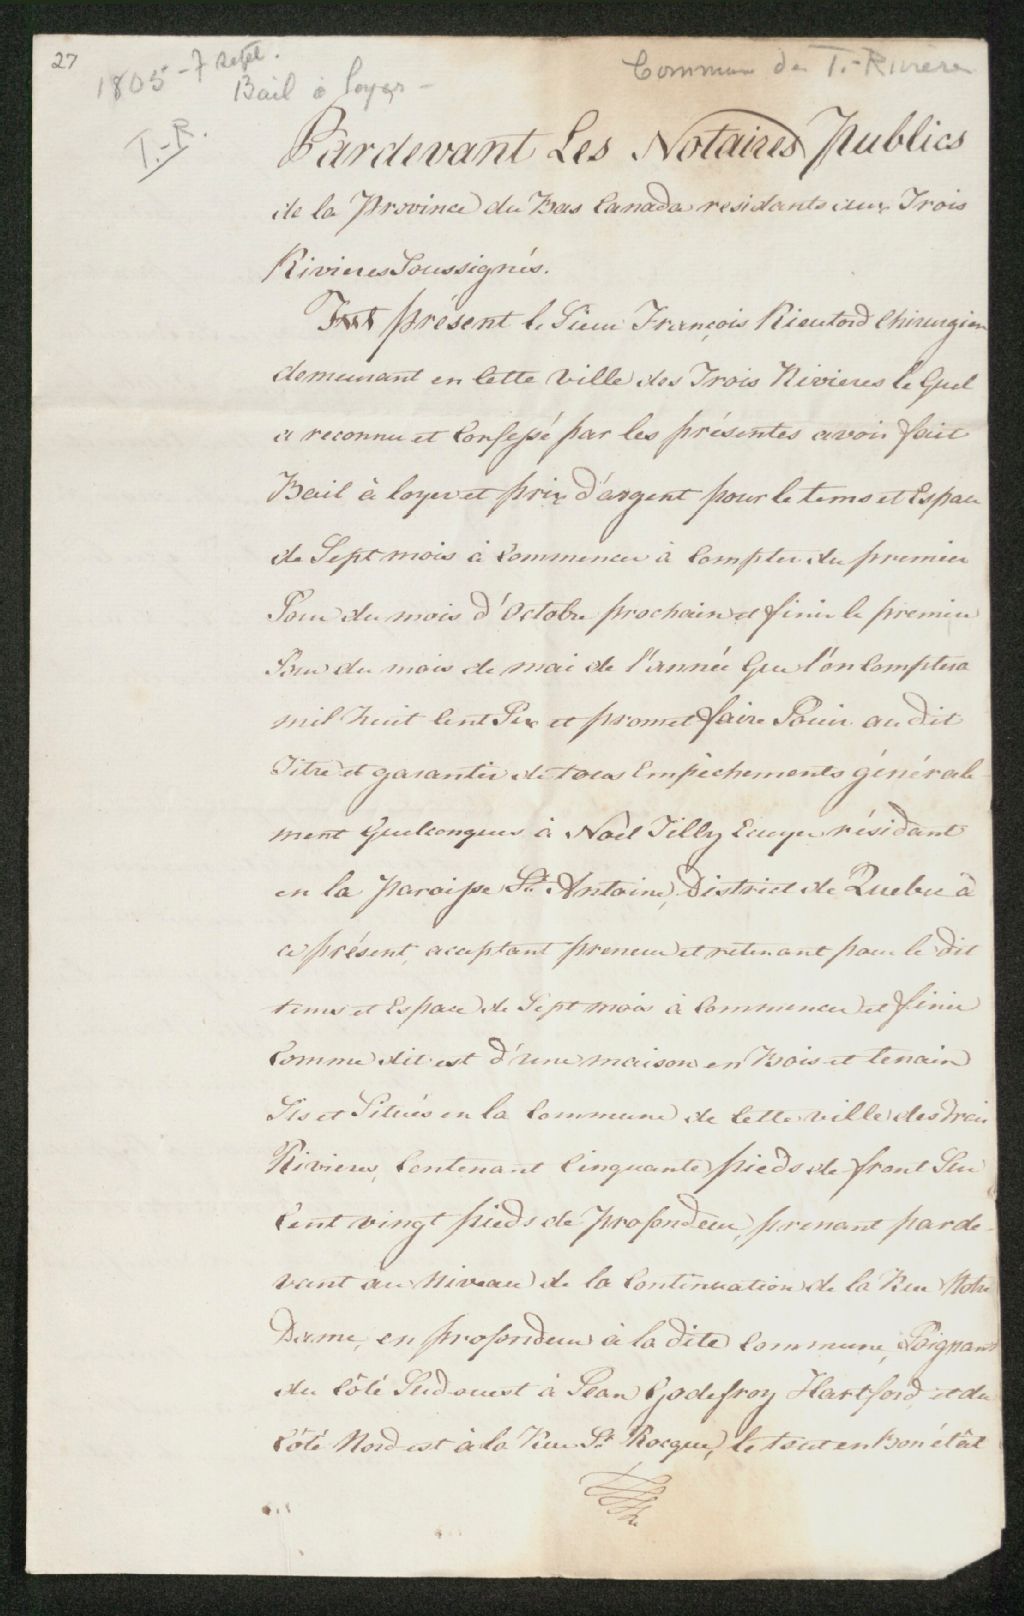 27
1805 - 7 Sept.
Bail à loyer -
Commune de T.-Rivière
T.-R.
Pardevant Les Notaires Publics
de la Province du Bas Canada residants aux Trois
Rivieres Soussignés.
Fut présent le Sieur François Rieutord Chirurgien
demeurant en Cette Ville des Trois Rivieres le Quel
a reconnu et Confessé par les présentes avoir fait
Bail à loyer et prix d'argent pour le tems et Espace
de Sept mois à Commencer à Compter du premier
Jour du mois d'Octobre prochain et finir le premier
Jour du mois de mai de l'année Que l'on Comptera
mil huit Cent Six et promet faire Jouir au dit
Titre et garantir de tous Empêchements générale-
ment Quelconques à Noël Tilly Ecuyer résidant
en la Paroisse St. Antoine, District de Quebec à
ce présent, acceptant preneur et retenant pour le dit
tems et Espace de Sept mois à Commencer et finir
Comme dit est d'une maison en Bois et terrain
Sis et Situés en la Commune de Cette ville des Trois
Rivieres, Contenant Cinquante pieds de front Sur
Cent vingt pieds de Profondeur, prenant parde-
vant au Niveau de la Continuation de la Rue Notre
Dame, en profondeur à la dite Commune, Joignant
du Côté Sud ouest à Jean Godefroy Hartford, et du
Côté Nord est à la Rue St. Rocque, le tout en Bon état